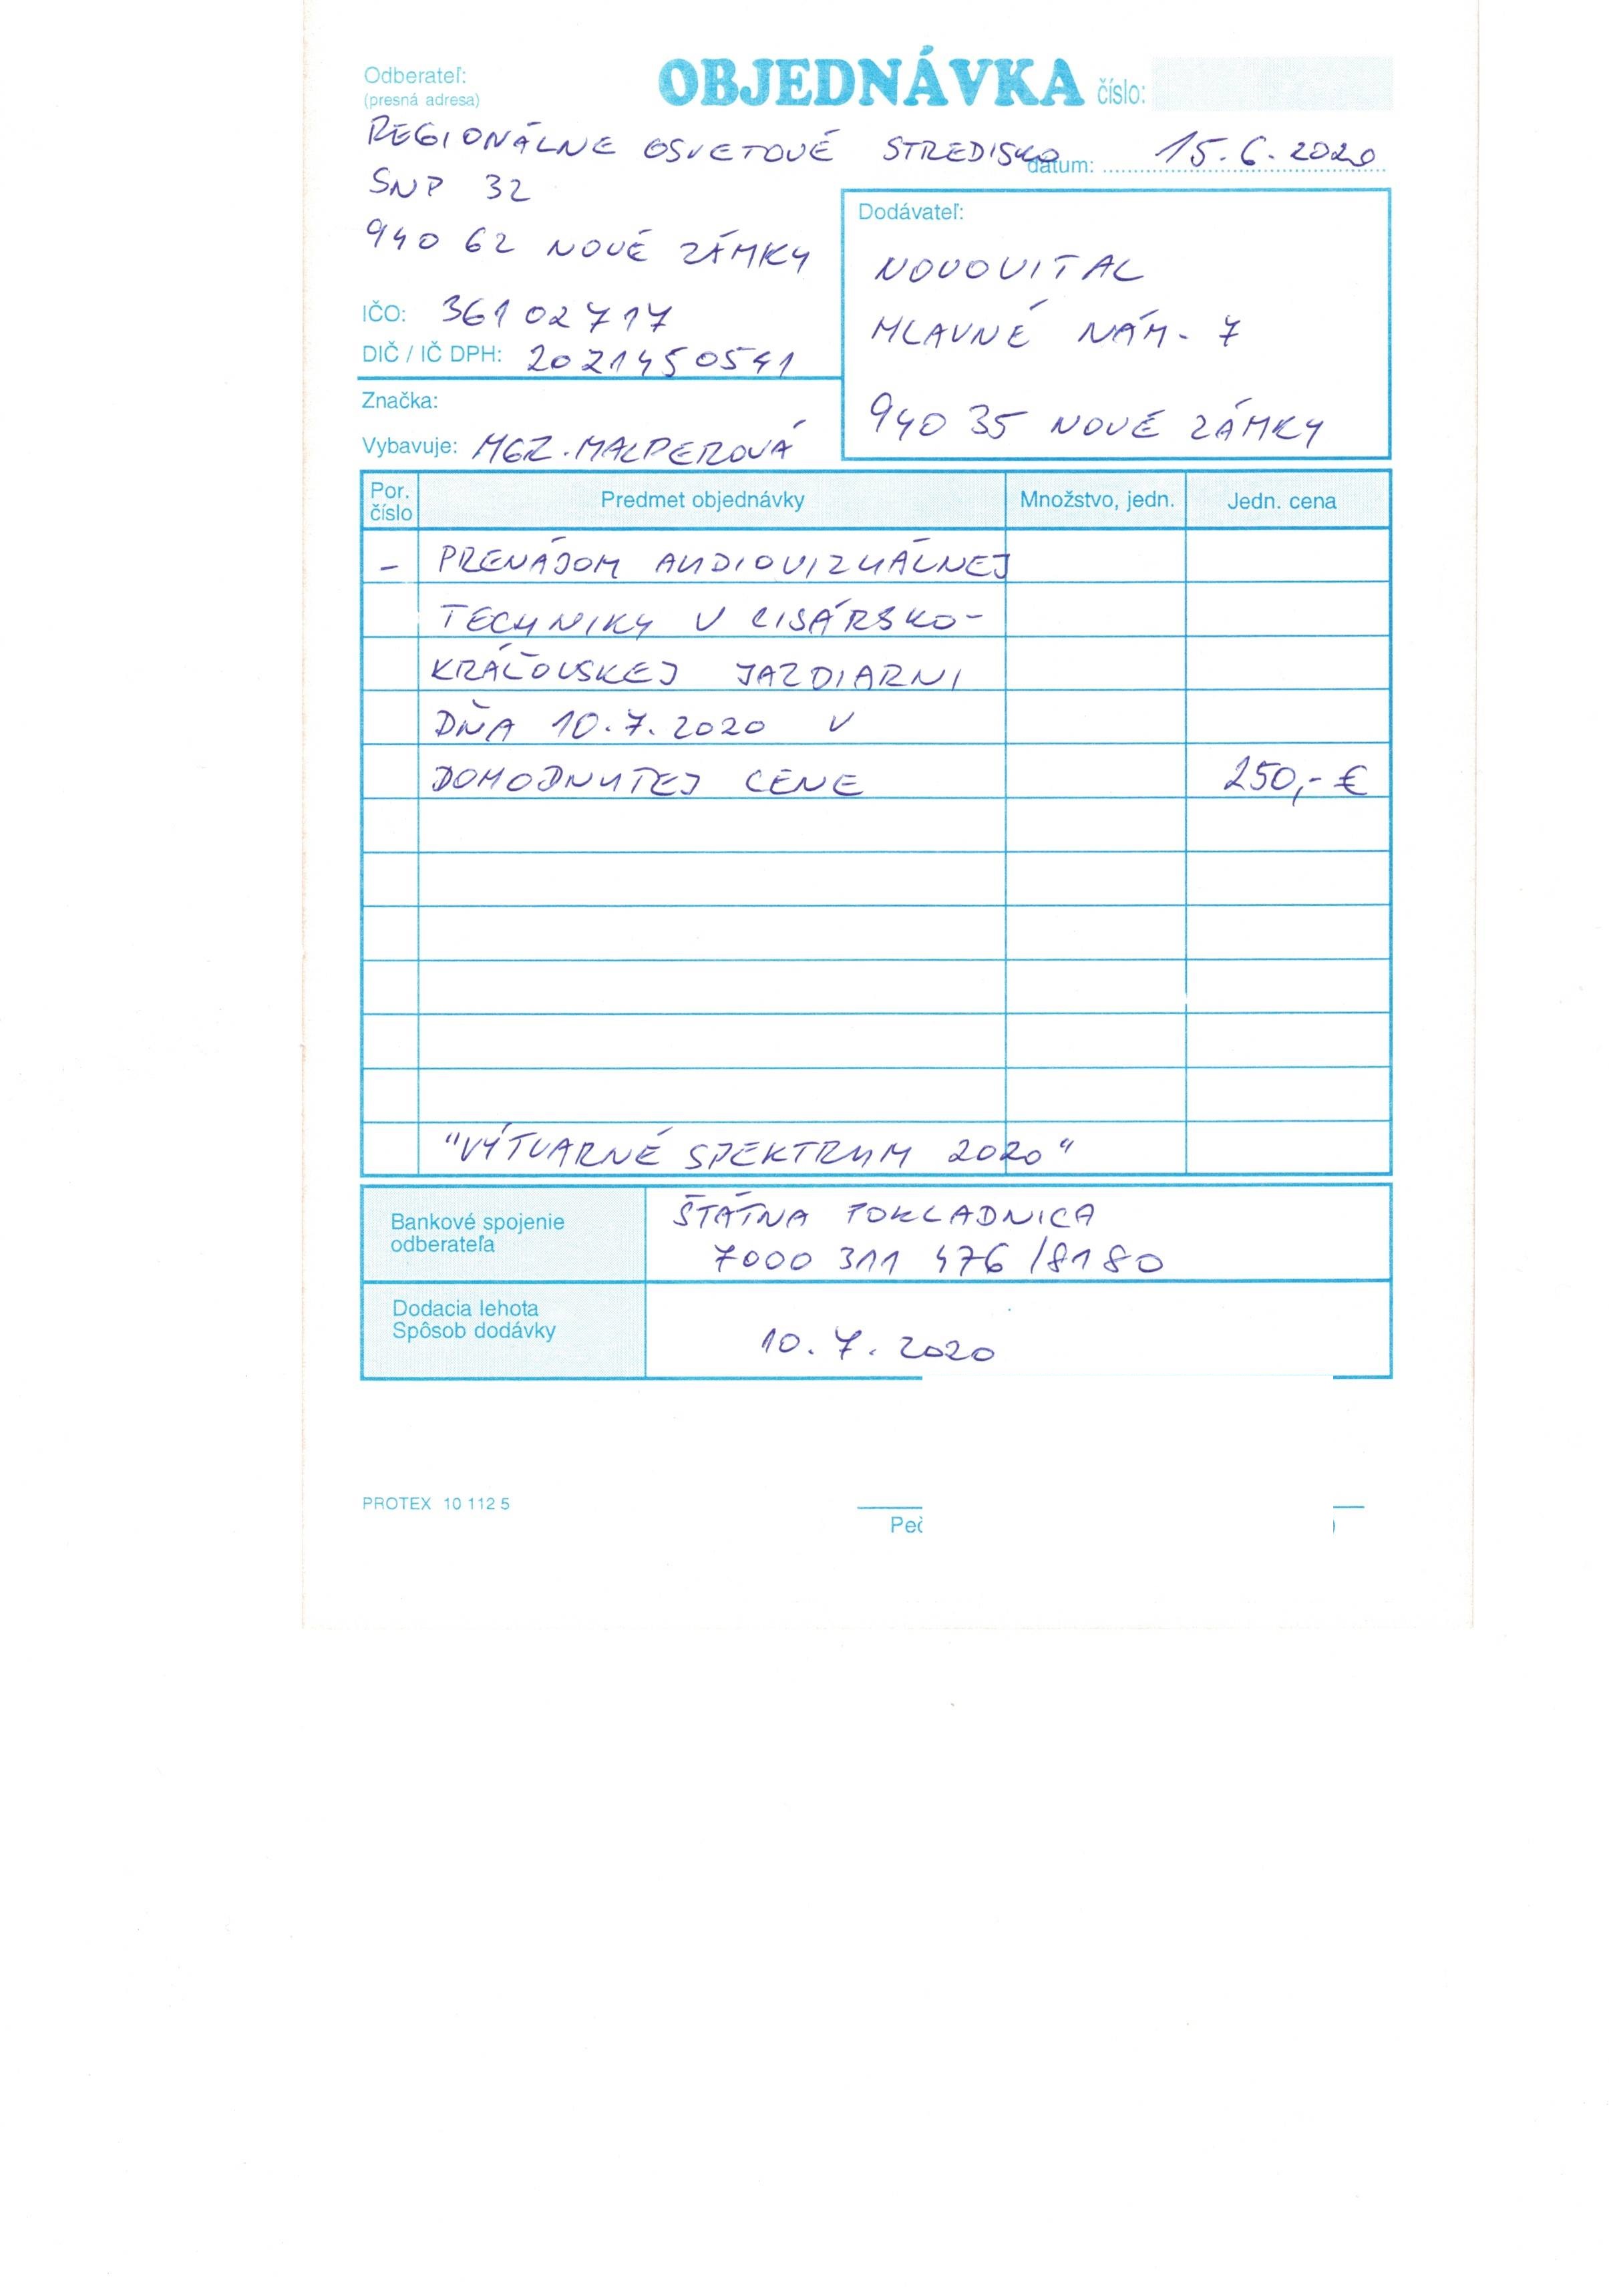 Odberateľ:
(presná adresa)
OBJEDNÁVKA číslo:
REGIONÁLNE OSVETOVÉ STREDISKO
dátum: 15.6.2020
SNP 32
940 62 NOVÉ ZÁMKY
IČO: 36102717
DIČ / IČ DPH: 2021450541
Značka:
Vybavuje: MGR. MALPEROVÁ
Dodávateľ:
NOVOVITAL
HLAVNÉ NÁM. 7
940 35 NOVÉ ZÁMKY
Por. číslo Predmet objednávky Množstvo, jedn. Jedn. cena
– PRENÁJOM AUDIOVIZUÁLNEJ
TECHNIKY V CISÁRSKO-
KRÁĽOVSKEJ JAZDIARNI
DŇA 10.7.2020 V
DOHODNUTEJ CENE 250,- €
"VÝTVARNÉ SPEKTRUM 2020"
Bankové spojenie
odberateľa
ŠTÁTNA POKLADNICA
7000 311 476 /8180
Dodacia lehota
Spôsob dodávky
10. 7. 2020
PROTEX 10 112 5